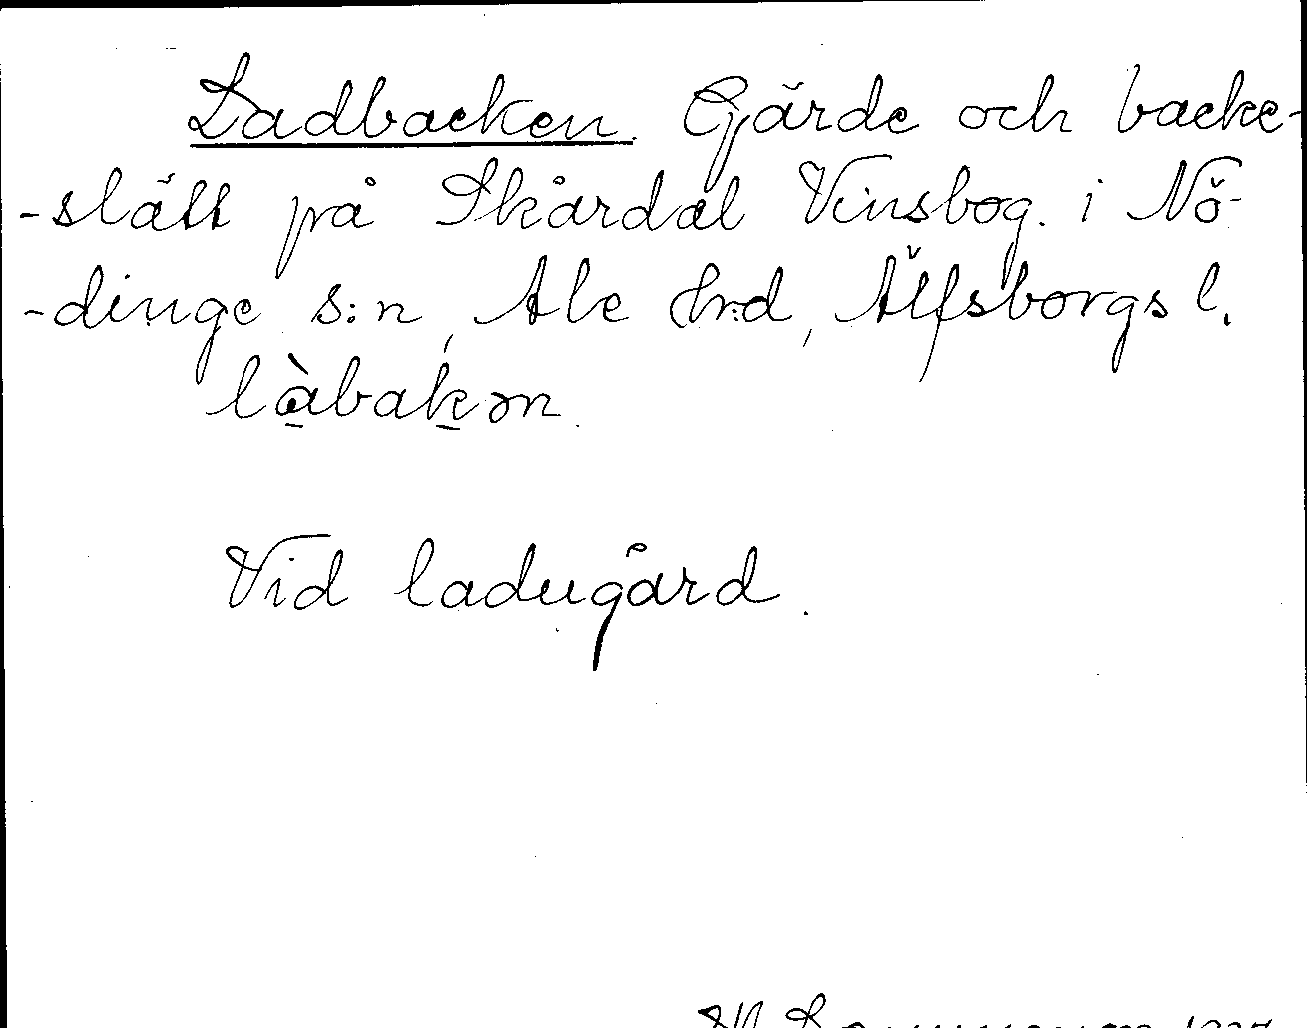 Ladbacken. Gärde och backe-
-slätt på Skårdal Vinsbog. i Nö-
-dinge s:n, Ale hrd, Älfsborgs l.
làbakən.
Vid ladugård.